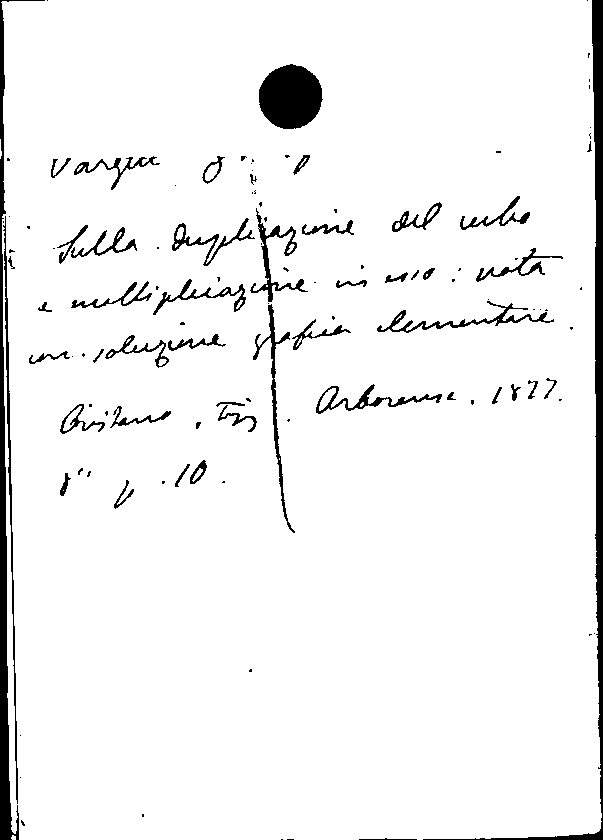 Vargiu G. P
Sulla duplicazione del cubo
e moltiplicazione in esso: nota
con soluzione grafica elementare.
Oristano, Tip. Arborense. 1877.
8° p. 10.